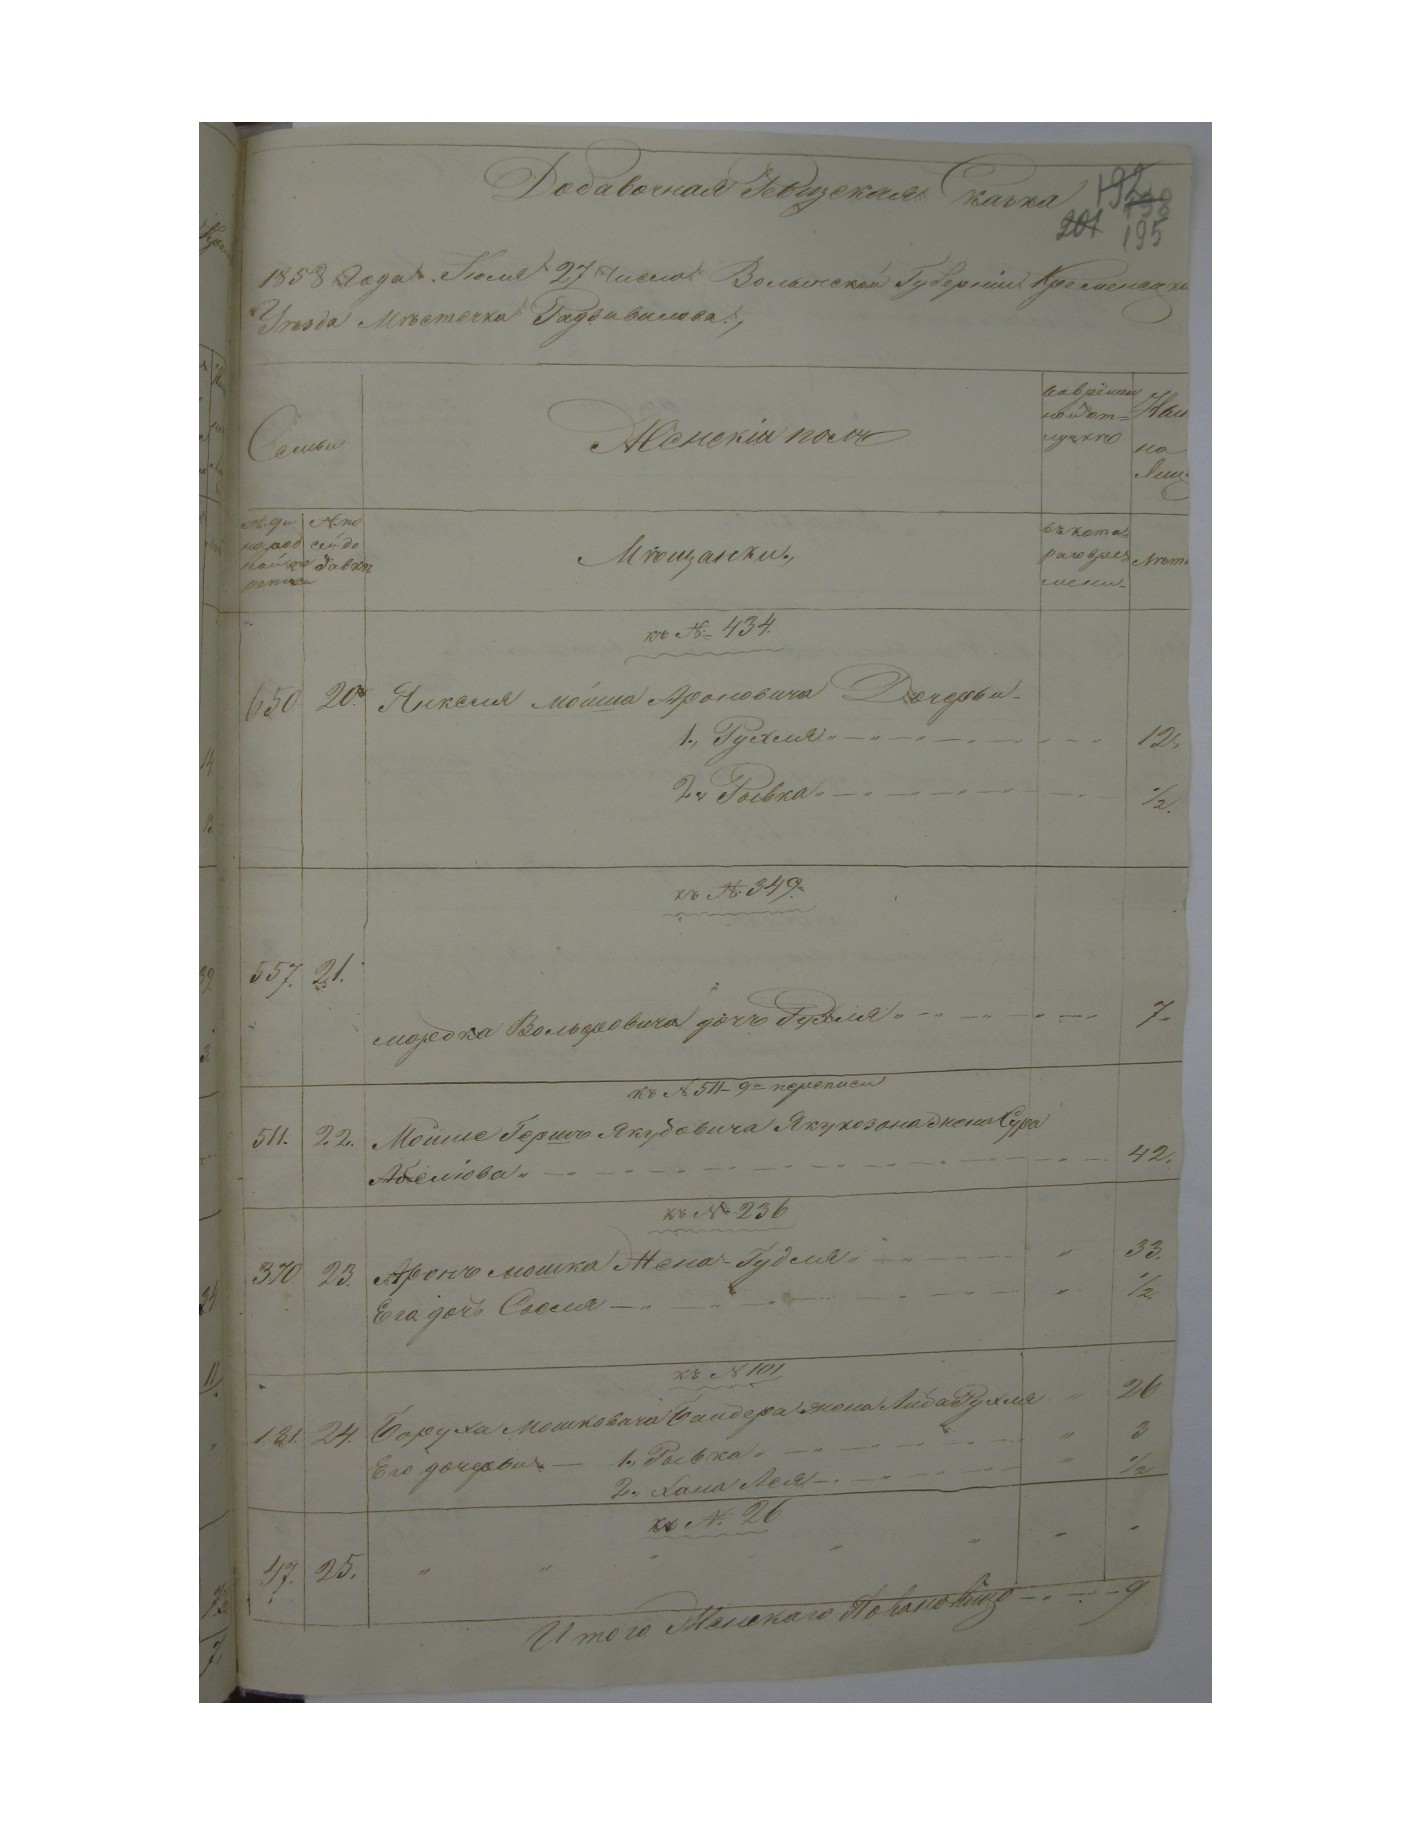 Добавочная Ревизская Сказка
192
198
201
195
1858 Года Июля 27 числа Волынской Губернии Кременецка
Уезда Местечка Радзивилова.,
Семьи
Женскій полъ
вовремен
ной от=
лучке
на
Мещанки.,
съ кота=
раго вре=
мени.
къ № 434.
650 20. Янкеля Мойша Ароновича Дочерьи
1., Рухля 12.
2., Рывка ½.
къ № 349.
557. 21.
мордка Вольфовича дочь Рухля 7.
къ № 511 9й переписи
511. 22. Мойше Гершъ Якубовича Якухозона жена Сура
Абелюва 42.
къ № 236
370 23. Аронъ мошка Жена Гудля " 33.
Его дочь Сосля " ½
къ № 101
181. 24. Боруха Мошковича Бандера жена Либа Рухля " 26
Его дочерьи 1., Рывка " 3
2., Хана Лея " ½
къ № 26
47. 25. " " " " " " "
Итого Женскаго пола 9